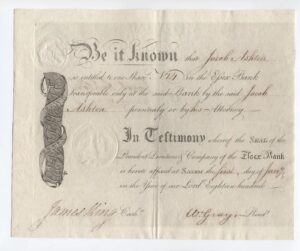 Be it Known that Jacob Ashton
is entitled to one Share in the Essex Bank
transferable only at the said Bank by the said Jacob
Ashton personally or by his Attorney
In Testimony whereof the SEAL of the
President Directors & Company of the Essex Bank
is hereto affixed at SALEM the first day of Jany
in the Year of our Lord Eighteen hundred
James King Cashr Wm Gray Presidt